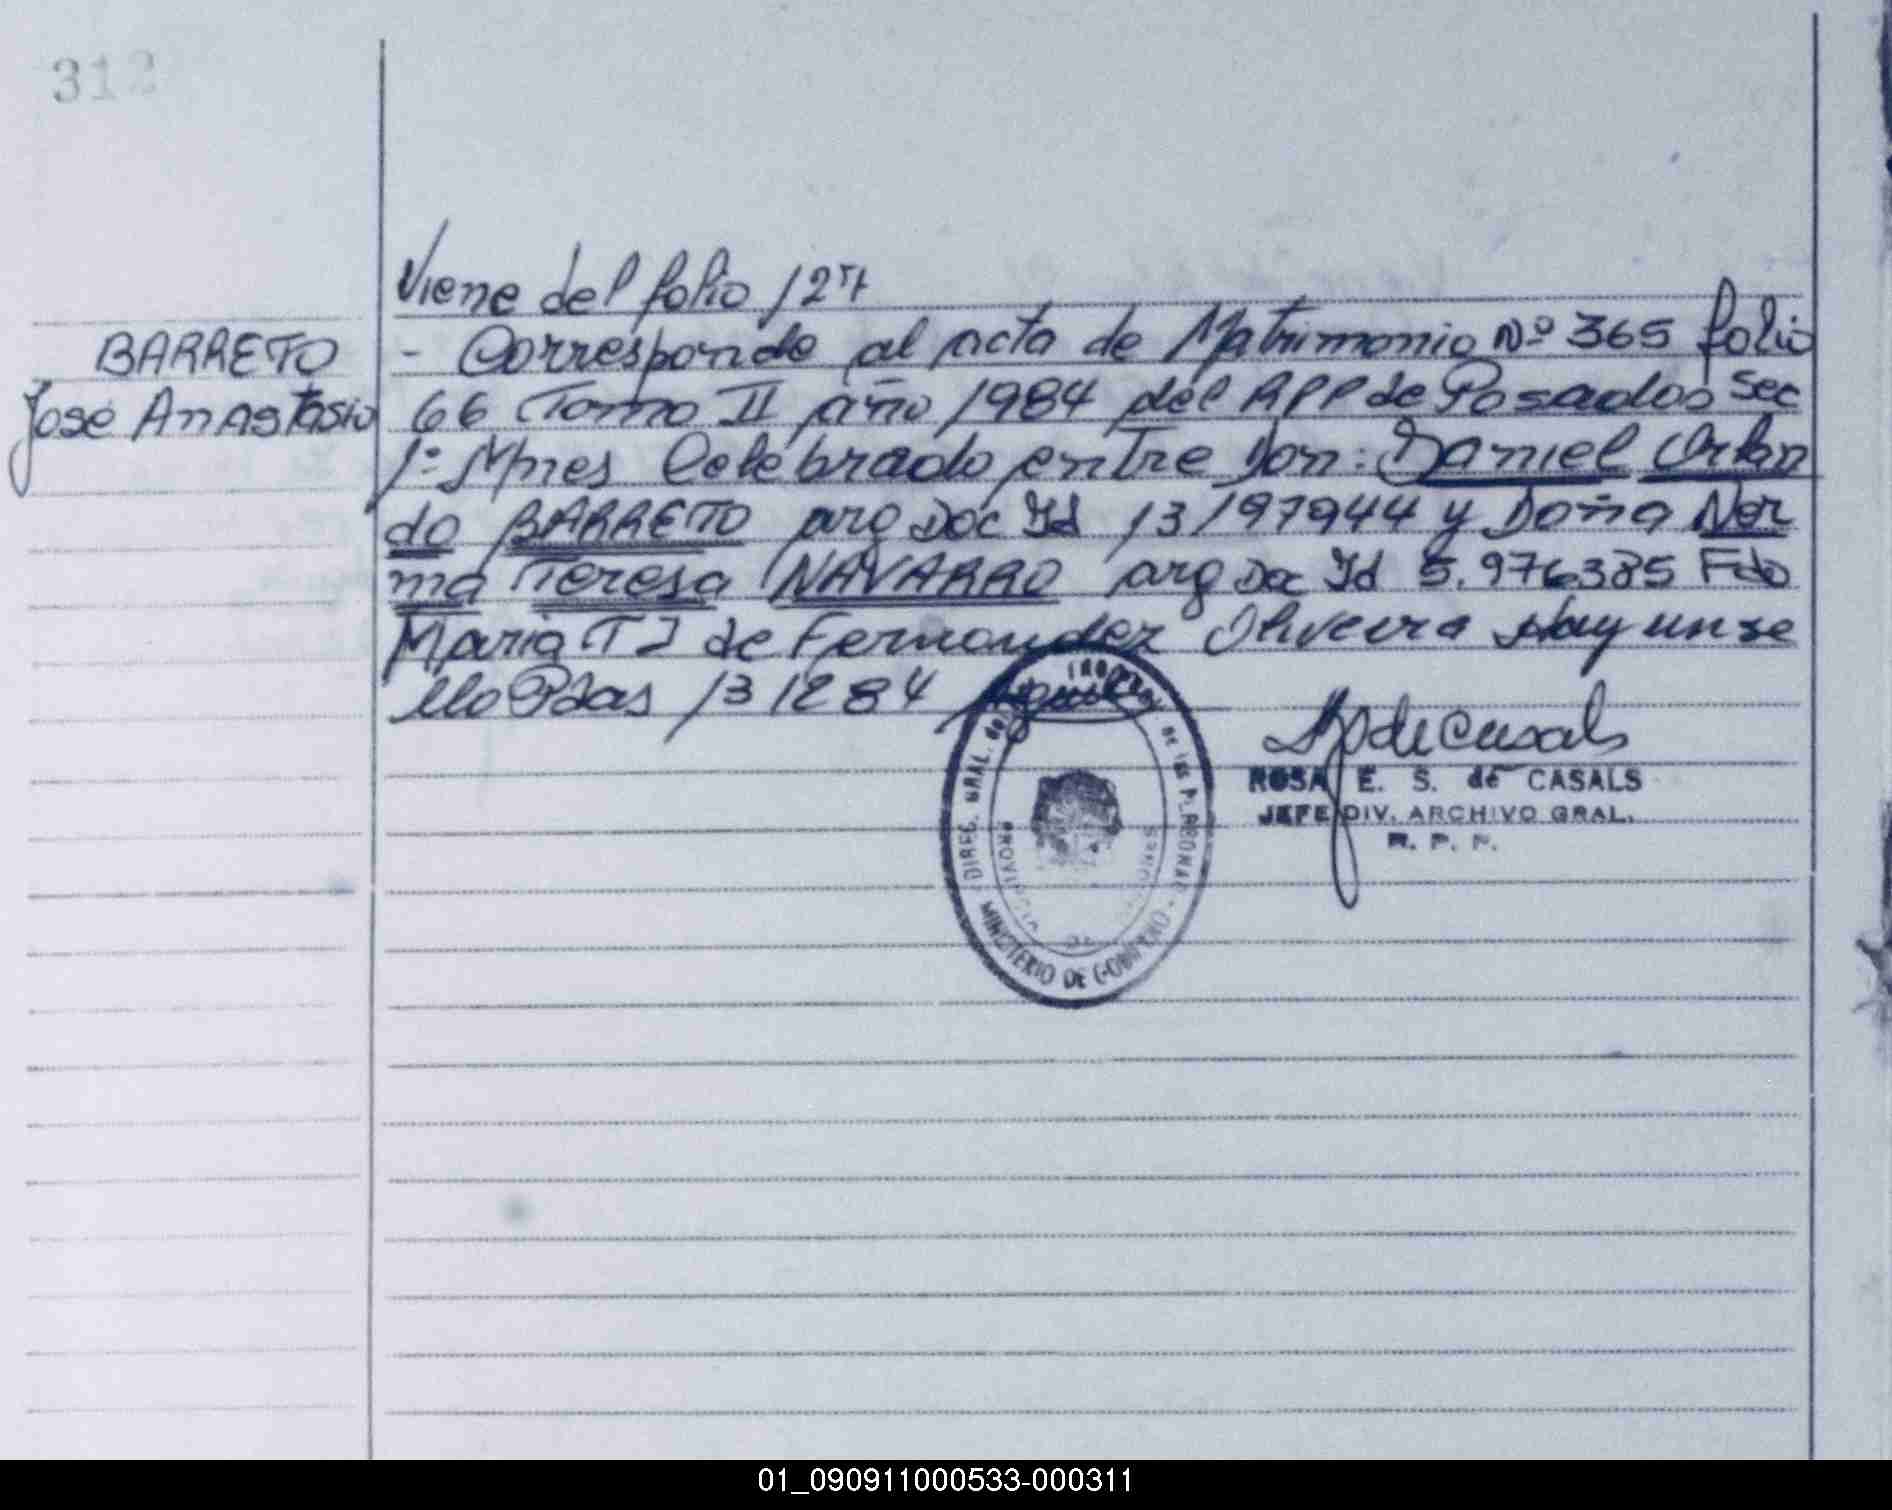 312
Viene del folio 127
BARRETO
José Anastasio
- Corresponde al acta de Matrimonio Nº 365 folio
66 Tomo II año 1984 del RPP de Posadas Sec
1º Mnes Celebrado entre Don: Daniel Orlan
do BARRETO arg Doc Id 13197944 y Doña Nor
ma Teresa NAVARRO arg Doc Id 5.976385 Fdo
Maria T J de Fernandez Oliveira Hay un se
llo Pdas 13 12 84
de Casals
ROSA E. S. de CASALS
JEFE DIV. ARCHIVO GRAL.
R. P. P.
DIREC. GRAL. de de las PERSONAS
PROVINCIA DE MISIONES
MINISTERIO DE GOBIERNO
01_090911000533-000311